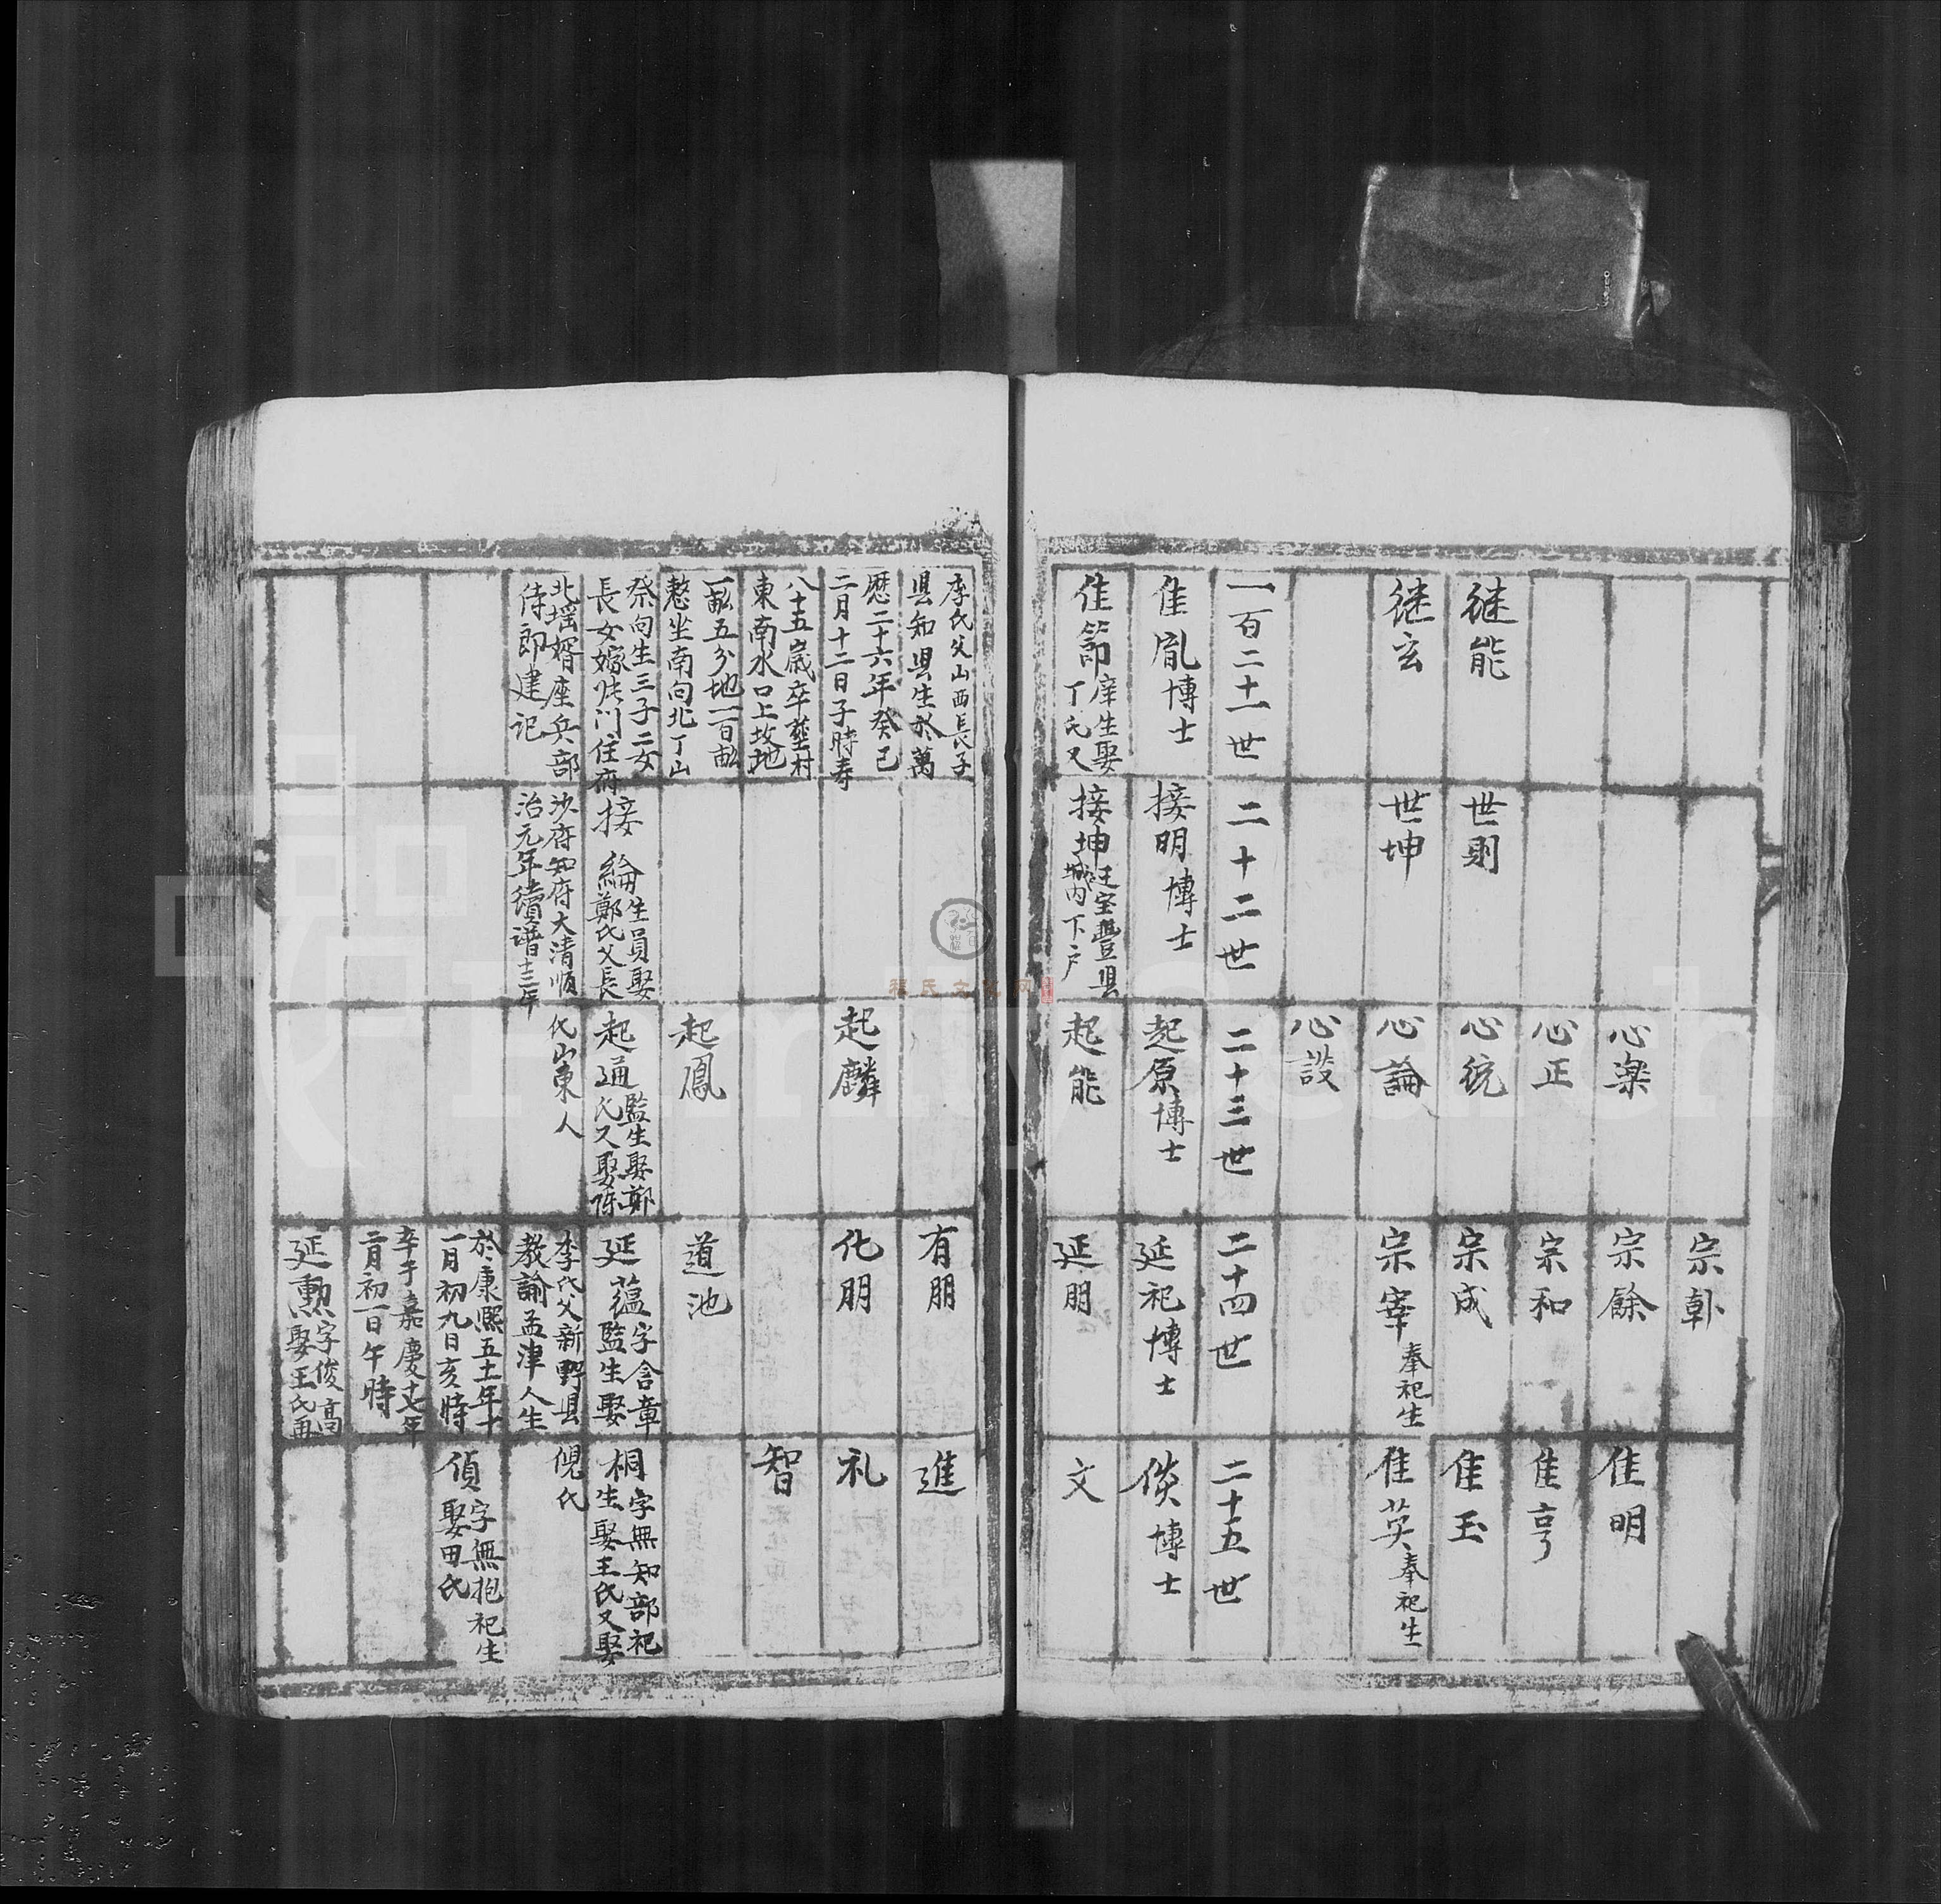 宗
宗餘
宗和
宗成
宗宰 奉祀生
心楽
心正
心統
心論
心設
继能
继玄
世則
世坤
隹明
隹亨
隹玉
隹英 奉祀生
一百二十一世
二十二世
二十三世
二十四世
二十五世
隹胤 博士
接明 博士
起原 博士
延祀 博士
倓 博士
隹節 庠生娶
丁氏又
接坤 迋宝豐县
城内下户
起能
延朋
文
李氏父山西長子
县知县生於萬
歷二十六年癸巳
二月十二日子時寿
八十五歲卒塟村
東南水口上故地
一畝五分地一百畝
整坐南向北丁山
祭向生三子二女
長女嫁 门住府
北瑶婿座兵部
侍郎建记
接綸 生員娶
鄭氏父長
沙府知府大清順
治元年續谱十三年
起麟
起鳳
起通 監生娶鄭
氏又娶陈
氏山東人
有朋
化朋
道池
延蕴 字含章
監生娶
李氏父新野县
教諭孟津人生
於康熙五十年十
一月初九日亥時
卒于嘉慶十七年
二月初一日午時
延勲 字俊高
娶王氏再
進
礼
智
桐 字無知部祀
生娶王氏又娶
倪氏
偵 字無抱祀生
娶田氏